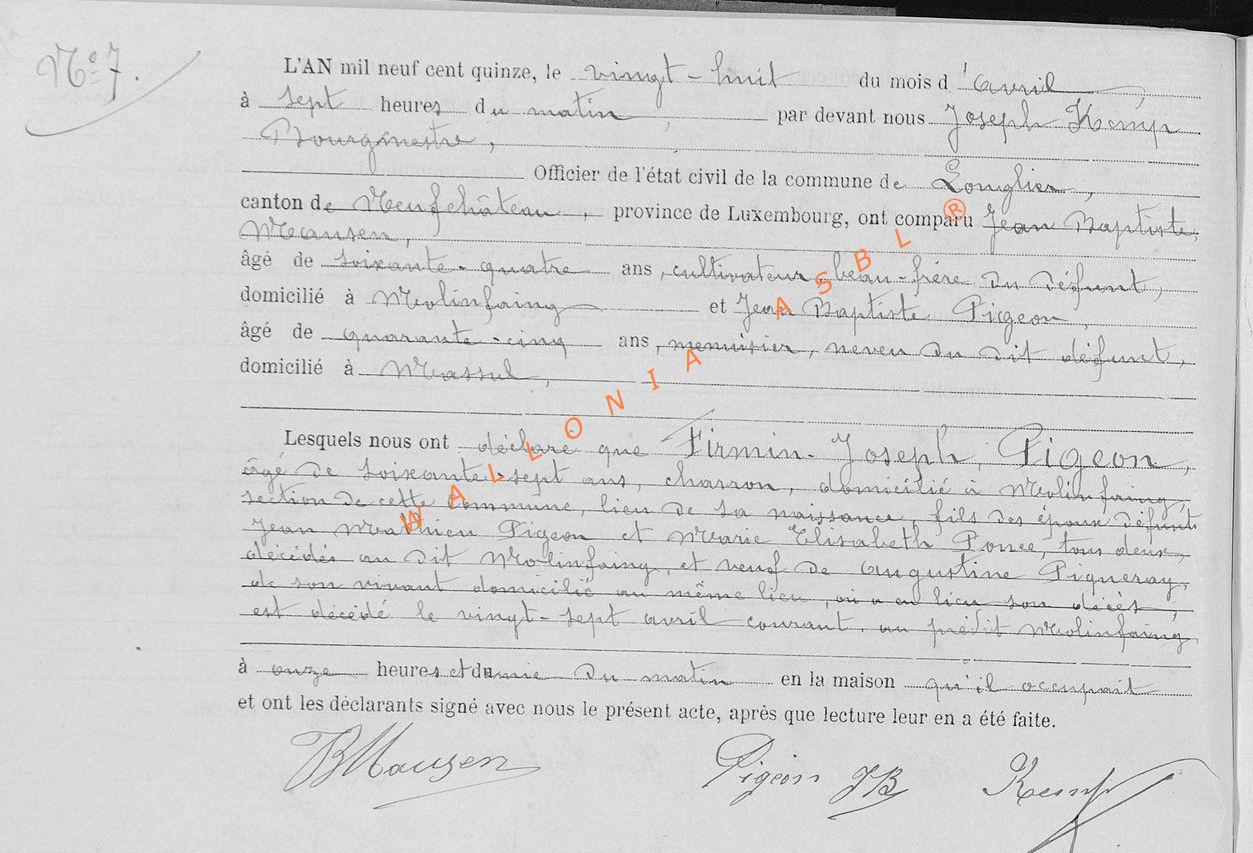 N° 7.
L'AN mil neuf cent quinze, le vingt-huit du mois d'avril,
à sept heures du matin, par devant nous Joseph Kemp
Bourgmestre,
Officier de l'état civil de la commune de Longlier,
canton de Neufchâteau, province de Luxembourg, ont comparu Jean Baptiste
Mausen,
âgé de soixante-quatre ans, cultivateur, beau-frère du défunt,
domicilié à Molinfaing et Jean Baptiste Pigeon,
âgé de quarante-cinq ans, menuisier, neveu du dit défunt,
domicilié à Massul,
Lesquels nous ont déclaré que Firmin-Joseph, Pigeon,
âgé de soixante-sept ans, charron, domicilié à Molinfaing,
section de cette commune, lieu de sa naissance, fils des époux défunts
Jean Mathieu Pigeon et Marie Elisabeth Ponce, tous deux
décédés au dit Molinfaing, et veuf de Augustine Pigneray,
de son vivant domicilié au même lieu, où a eu lieu son décès,
est décédé le vingt-sept avril courant, au prédit Molinfaing
à onze heures et demie du matin en la maison qu'il occupait
et ont les déclarants signé avec nous le présent acte, après que lecture leur en a été faite.
JBMausen Pigeon JB Kemp
WALLONIA ASBL ®